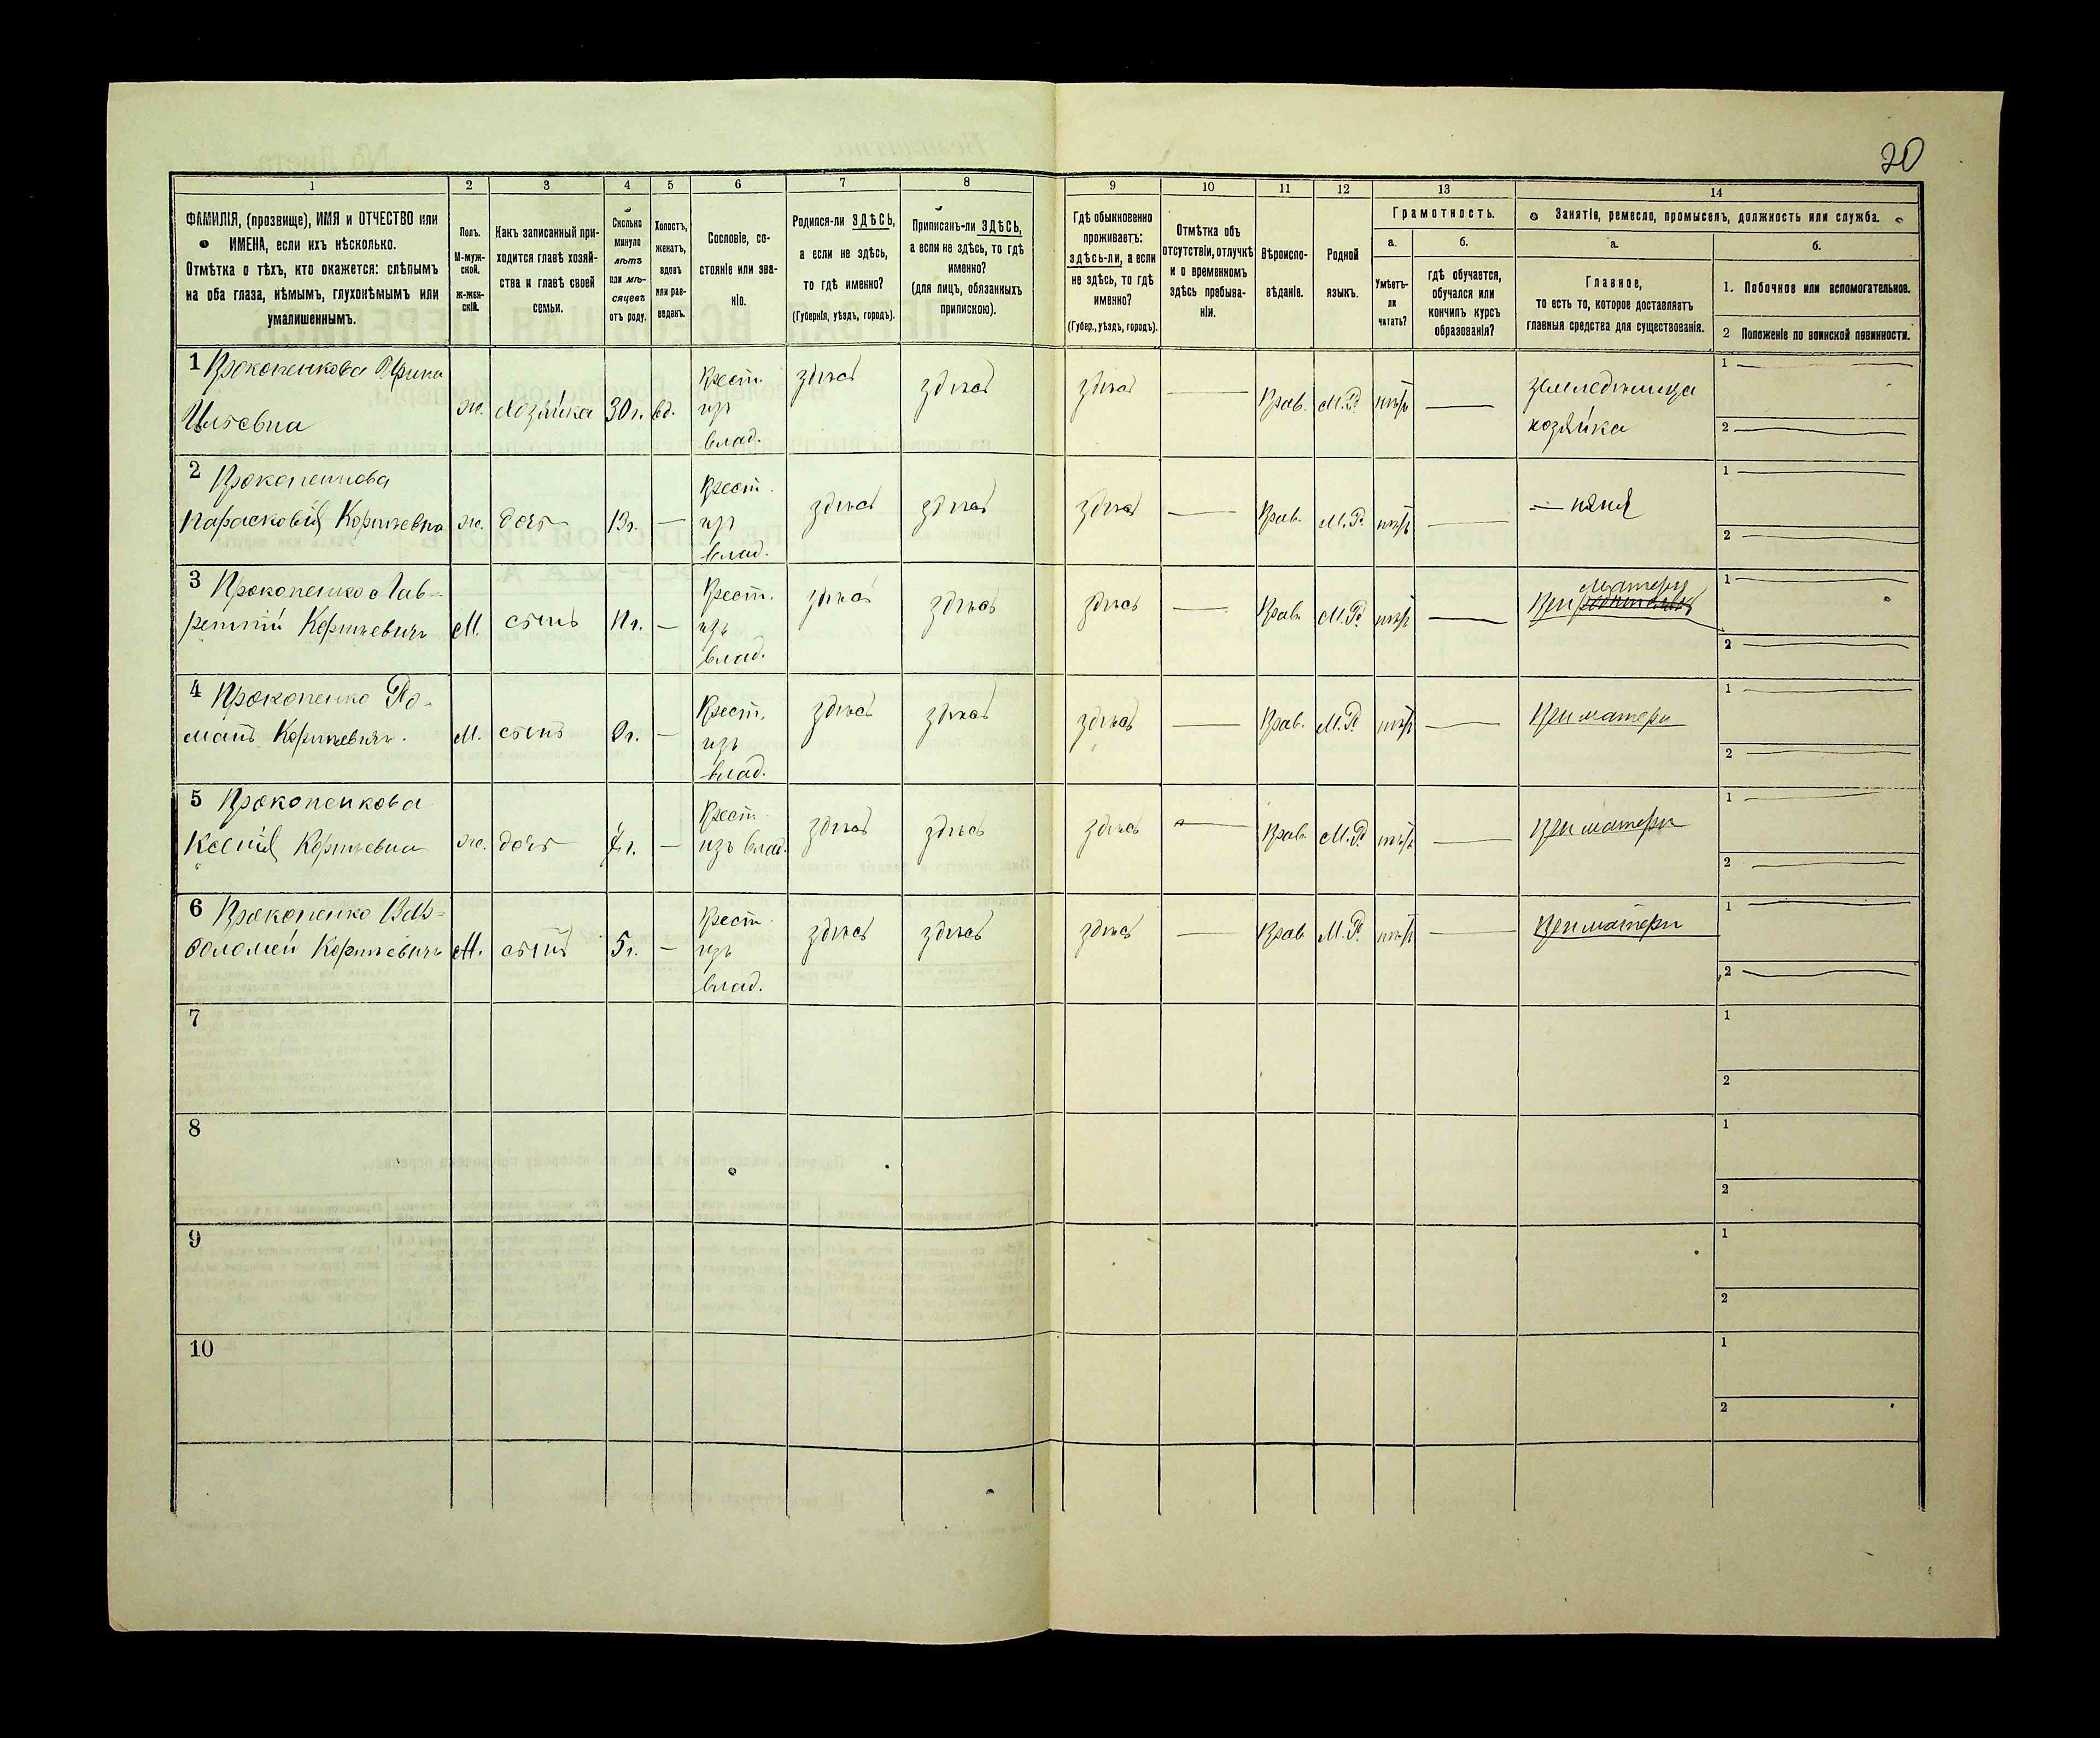 20
1 2 3 4 5 6 7 8 9 10 11 12 13 14
ФАМИЛІЯ, (прозвище), ИМЯ и ОТЧЕСТВО или
ИМЕНА, если ихъ нѣсколько.
Отмѣтка о тѣхъ, кто окажется: слѣпымъ
на оба глаза, нѣмымъ, глухонѣмымъ или
умалишеннымъ.
Полъ.
М-муж-
ской.
Ж-жен-
скій.
Какъ записанный при-
ходится главѣ хозяй-
ства и главѣ своей
семьи.
Сколько
минуло
лѣтъ
или мѣ-
сяцевъ
отъ роду.
Холостъ,
женатъ,
вдовъ
или раз-
веденъ.
Сословіе, со-
стояніе или зва-
ніе.
Родился-ли ЗДѢСЬ,
а если не здѣсь,
то гдѣ именно?
(Губернія, уѣздъ, городъ).
Приписанъ-ли ЗДѢСЬ,
а если не здѣсь, то гдѣ
именно?
(для лицъ, обязанныхъ
припискою).
Гдѣ обыкновенно
проживаетъ:
здѣсь-ли, а если
не здѣсь, то гдѣ
именно?
(Губер., уѣздъ, городъ).
Отмѣтка объ
отсутствіи, отлучкѣ
и о временномъ
здѣсь пребыва-
ніи.
Вѣроиспо-
вѣданіе.
Родной
языкъ.
Грамотность.
а.
Умѣетъ-
ли
читать?
б.
гдѣ обучается,
обучался или
кончилъ курсъ
образованія?
Занятія, ремесло, промыселъ, должность или служба.
а.
Главное,
то есть то, которое доставляетъ
главныя средства для существованія.
б.
1. Побочное или вспомогательное.
2 Положеніе по воинской повинности.
1 Прокопенкова Ирина
Ильевна
ж. хозяйка 30 г. вд.
Крест.
изъ
влад.
здѣсь здѣсь здѣсь — Прав. М.Р. нѣтъ —
земледѣлица
хозяйка
1 —
2 —
2 Прокопенкова
Парасковія Корнѣевна
ж. дочь 13 г. —
Крест.
изъ
влад.
здѣсь здѣсь здѣсь — Прав. М.Р. нѣтъ —
— няня
1 —
2 —
3 Прокопенко Лав-
рентій Корнѣевичъ
М. сынъ 11 г. —
Крест.
изъ
влад.
здѣсь здѣсь здѣсь — Прав. М.Р. нѣтъ —
матери
При
1 —
2 —
4 Прокопенко Ро-
манъ Корнѣевичъ.
М. сынъ —
Крест.
изъ
влад.
здѣсь здѣсь здѣсь — Прав. М.Р. нѣтъ —
При матери
1 —
2 —
5 Прокопенкова
Ксенія Корнѣевна
ж. дочь —
Крест.
изъ влад.
здѣсь здѣсь здѣсь — Прав. М.Р. нѣтъ —
При матери
1 —
2 —
6 Прокопенко
Корнѣевичъ
М. сынъ 5 г. —
Крест.
изъ
влад.
здѣсь здѣсь здѣсь — Прав. М.Р. нѣтъ —
При матери
1 —
2 —
7
1
2
8
1
2
9
1
2
10
1
2